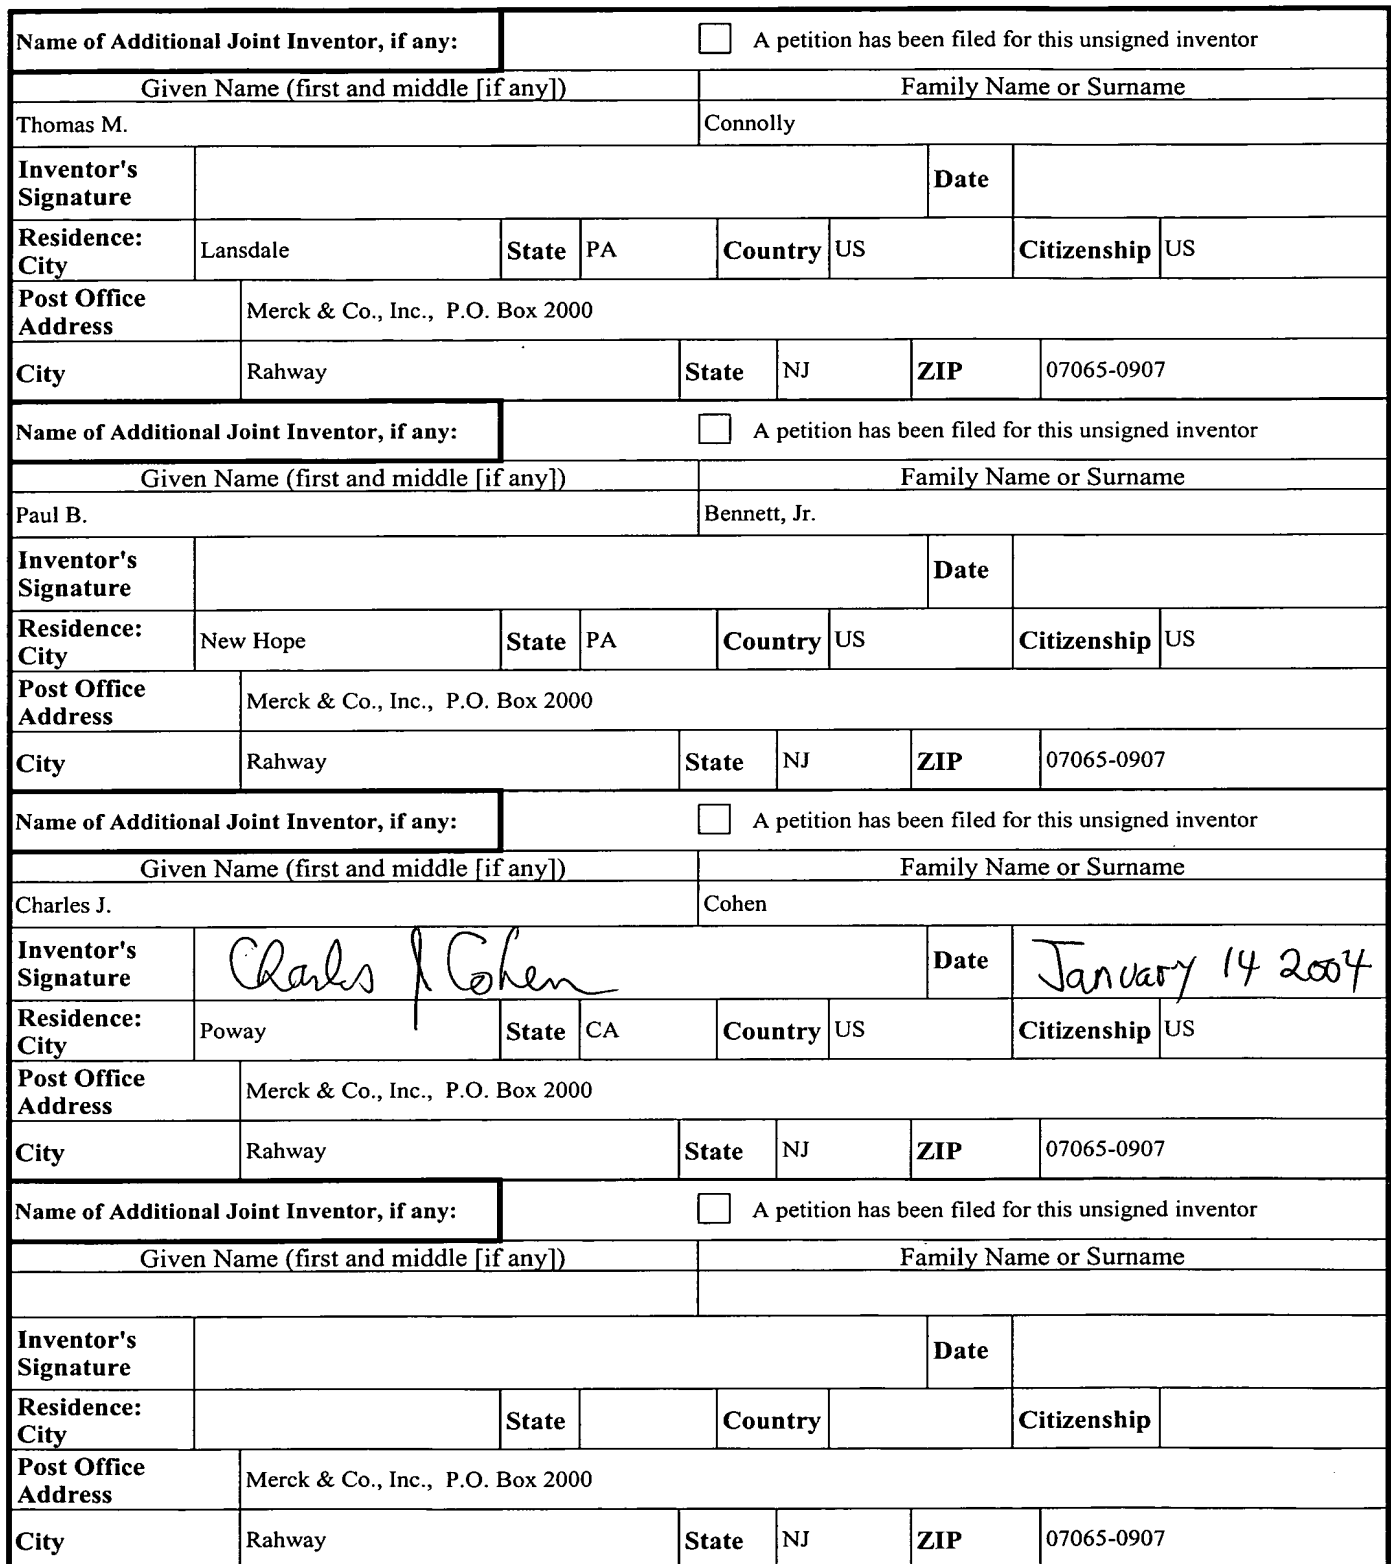 Name of Additional Joint Inventor, if any: A petition has been filed for this unsigned inventor
Given Name (first and middle [if any]) Family Name or Surname
Thomas M. Connolly
Inventor's Signature Date
Residence: City Lansdale State PA Country US Citizenship US
Post Office Address Merck & Co., Inc., P.O. Box 2000
City Rahway State NJ ZIP 07065-0907
Name of Additional Joint Inventor, if any: A petition has been filed for this unsigned inventor
Given Name (first and middle [if any]) Family Name or Surname
Paul B. Bennett, Jr.
Inventor's Signature Date
Residence: City New Hope State PA Country US Citizenship US
Post Office Address Merck & Co., Inc., P.O. Box 2000
City Rahway State NJ ZIP 07065-0907
Name of Additional Joint Inventor, if any: A petition has been filed for this unsigned inventor
Given Name (first and middle [if any]) Family Name or Surname
Charles J. Cohen
Inventor's Signature Charles J Cohen Date January 14 2004
Residence: City Poway State CA Country US Citizenship US
Post Office Address Merck & Co., Inc., P.O. Box 2000
City Rahway State NJ ZIP 07065-0907
Name of Additional Joint Inventor, if any: A petition has been filed for this unsigned inventor
Given Name (first and middle [if any]) Family Name or Surname
Inventor's Signature Date
Residence: City State Country Citizenship
Post Office Address Merck & Co., Inc., P.O. Box 2000
City Rahway State NJ ZIP 07065-0907